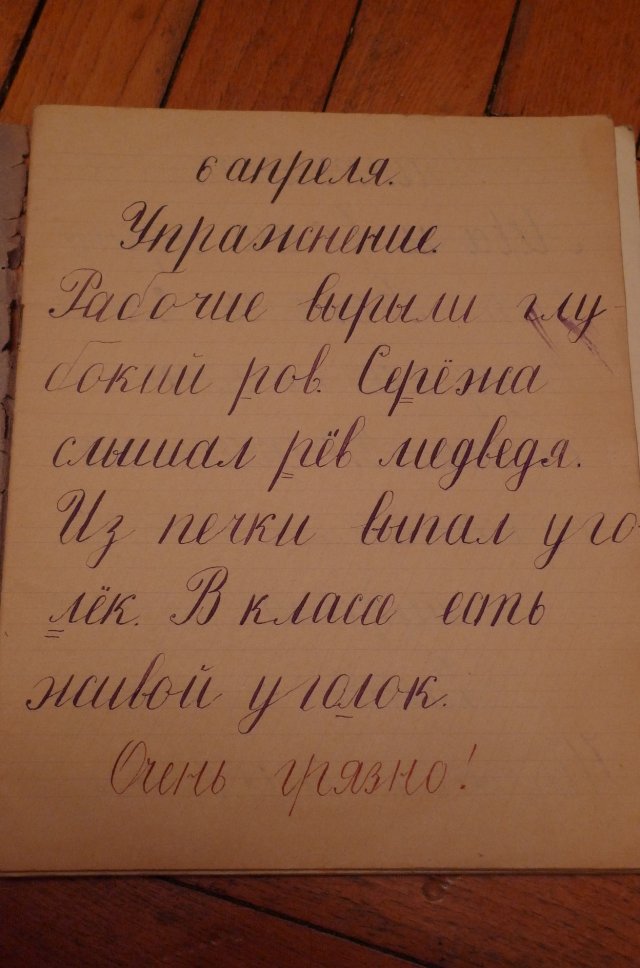 6 апреля.
Упражнение.
Рабочие вырыли глу-
бокий ров. Серёжа
слышал рёв медведя.
Из печки выпал уго-
лёк. В классе есть
живой уголок.
Очень грязно!